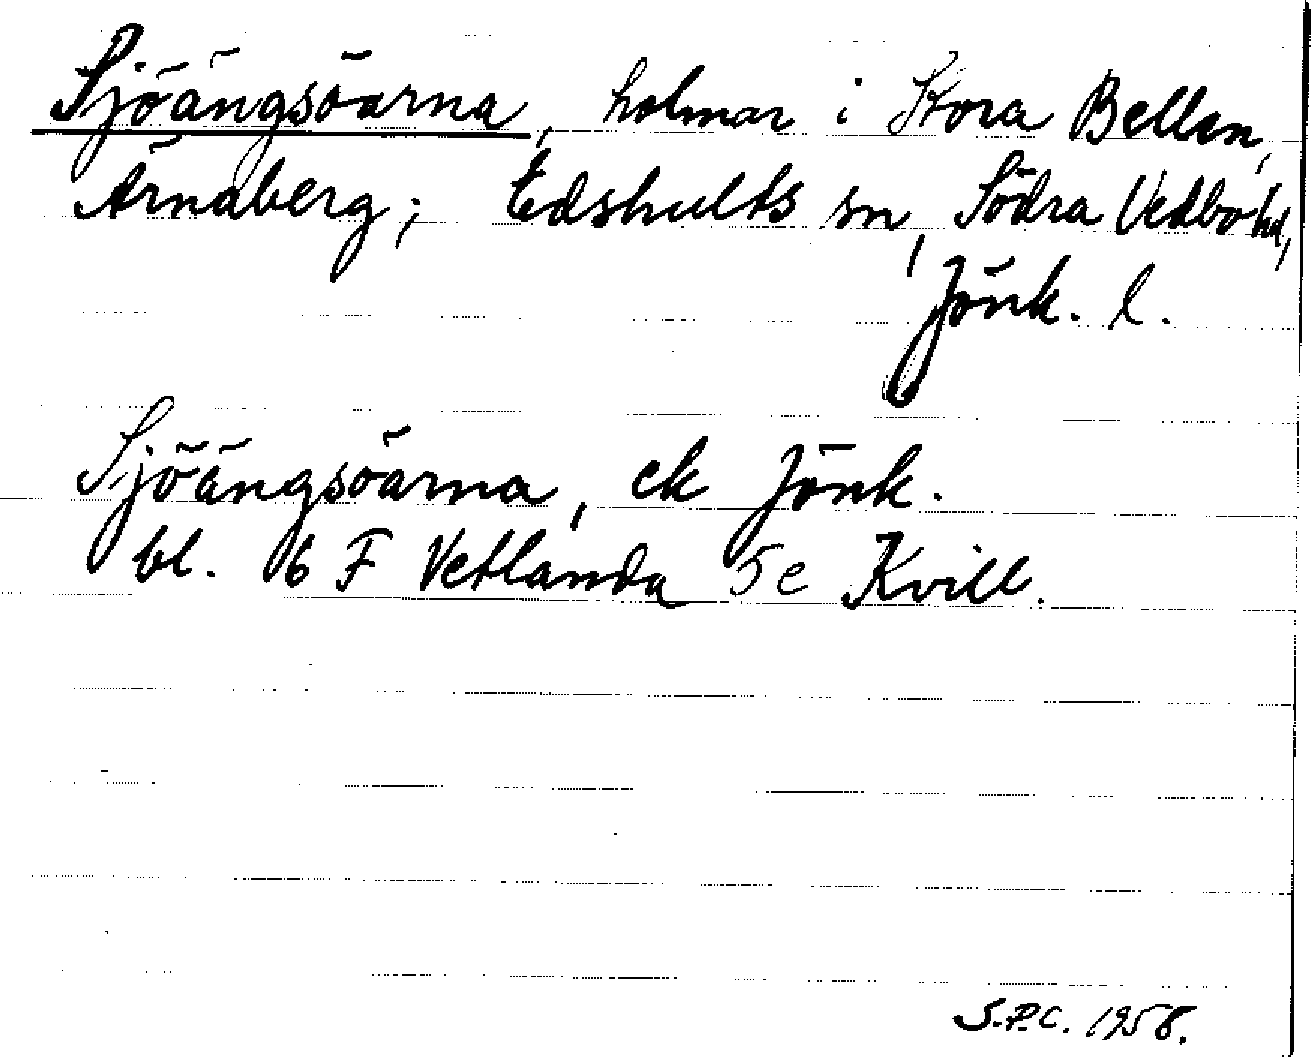 Sjöängsöarna, holmar i Stora Bellen,
Ärnaberg; Edshults sn, Södra Vedbo hd,
Jönk. l.
Sjöängsöarna, ek Jönk.
bl. 6 F Vetlanda 5e Kvill.
S.P.C. 1958.